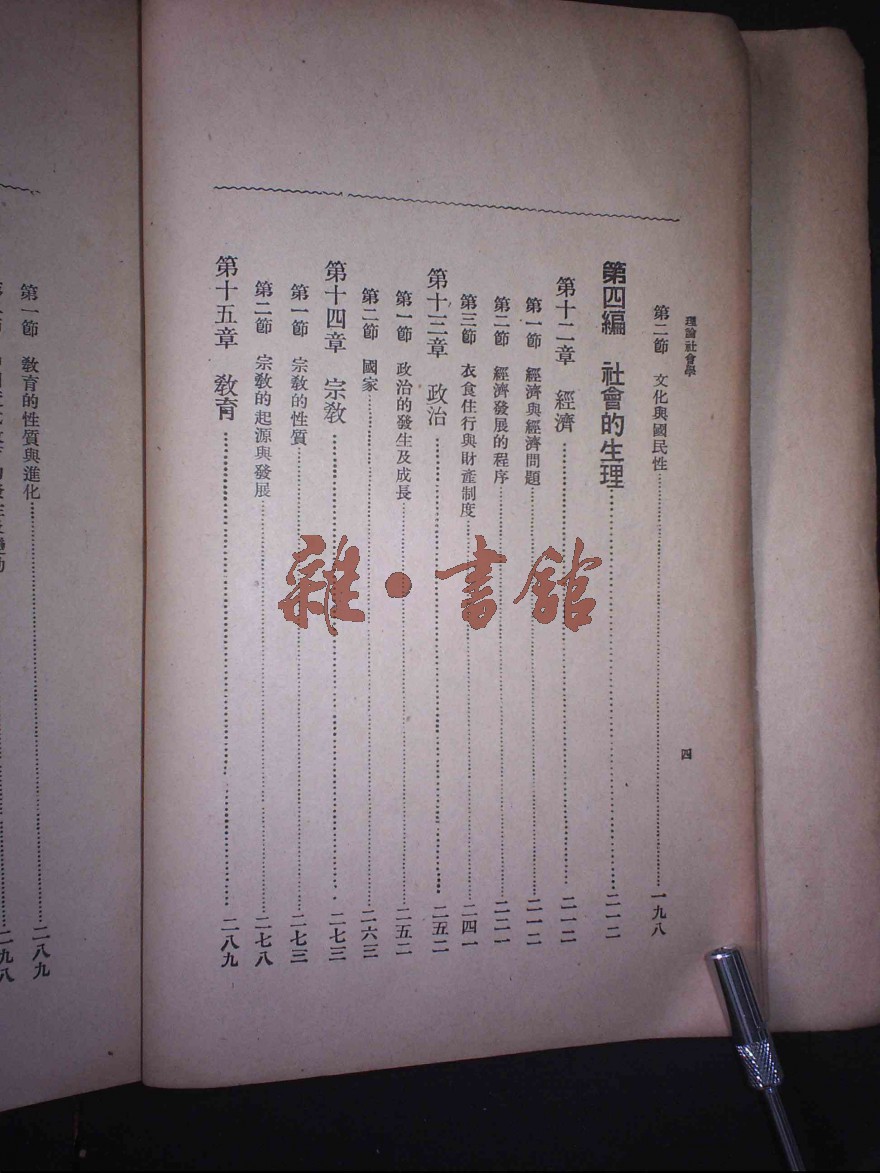 理論社會學
四
第二節 文化與國民性……一九八
第四編 社會的生理……二一二
第十二章 經濟……二一二
第一節 經濟與經濟問題……二一二
第二節 經濟發展的程序……二二一
第三節 衣食住行與財產制度……二四一
第十三章 政治……二五二
第一節 政治的發生及成長……二五二
第二節 國家……二六三
第十四章 宗教……二七三
第一節 宗教的性質……二七三
第二節 宗教的起源與發展……二七八
第十五章 教育……二八九
第一節 教育的性質與進化……二八九
二九八
雜·書館